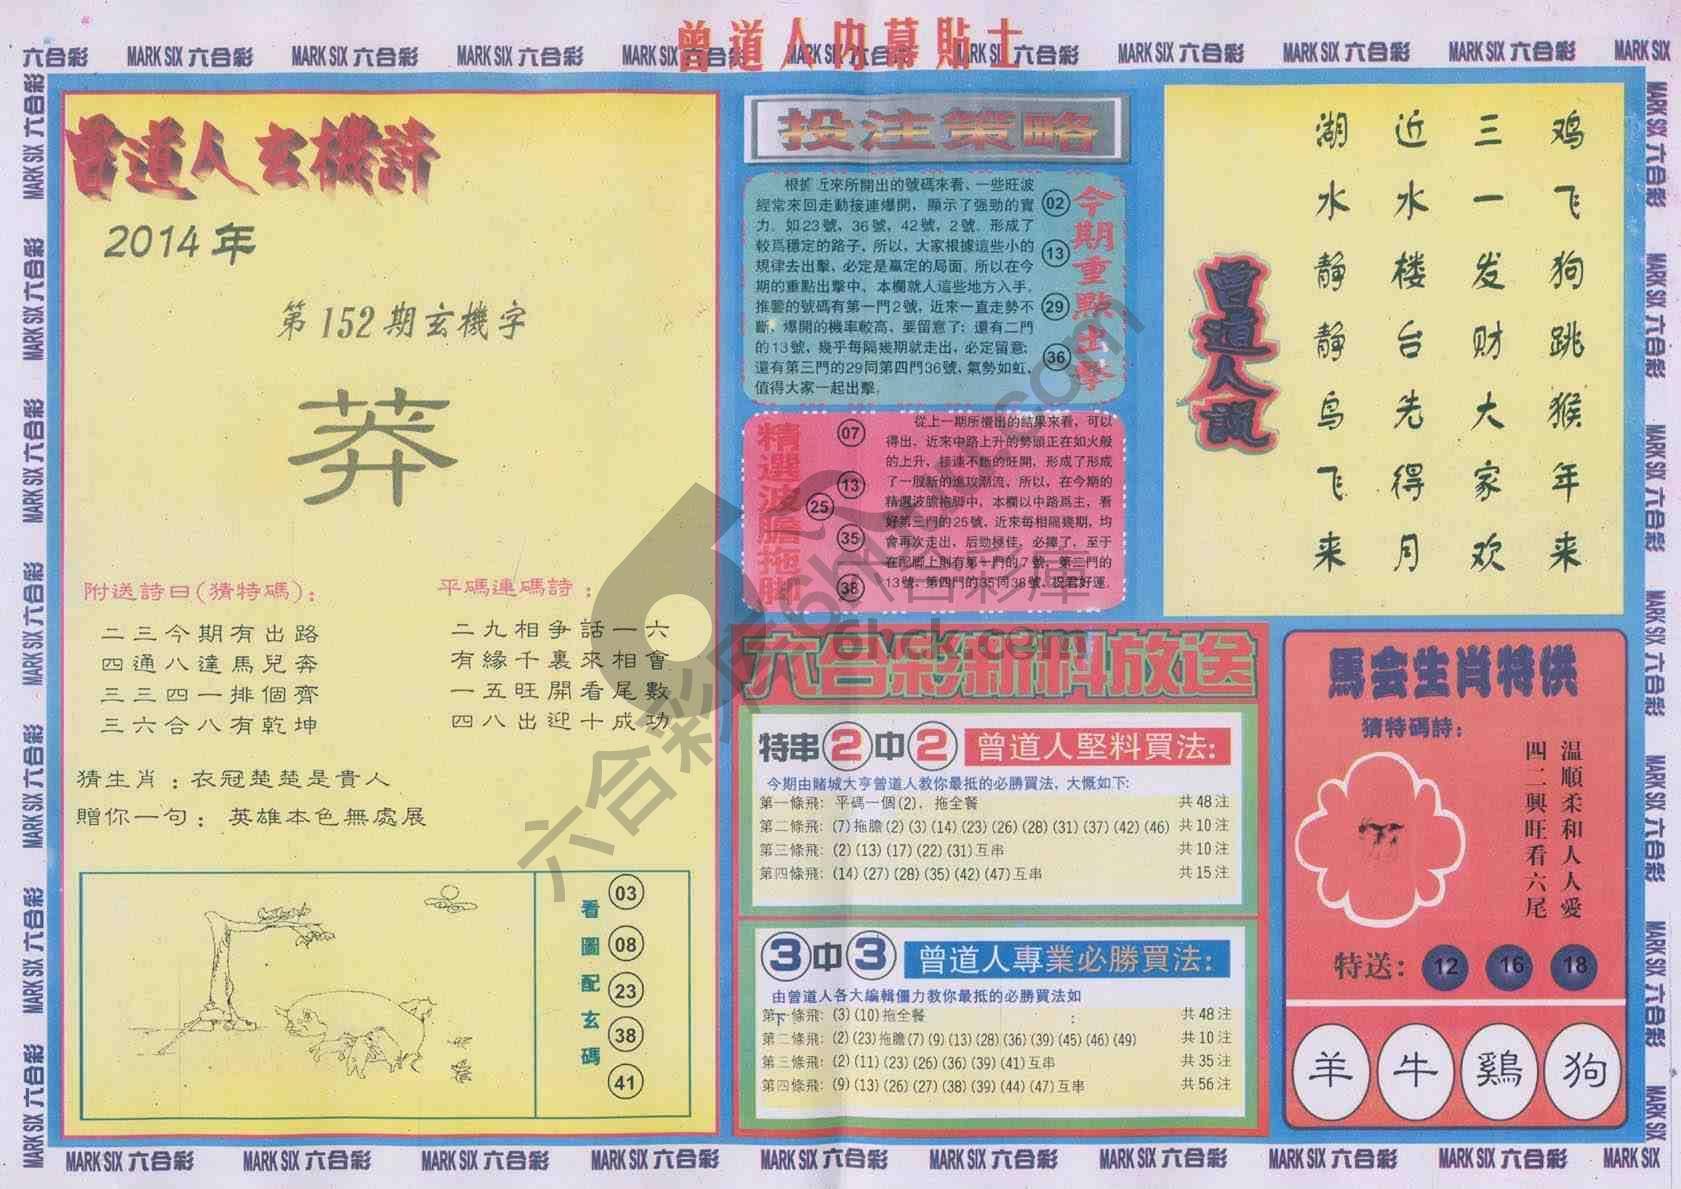 曾道人内幕貼士
六合彩 MARK SIX 六合彩 MARK SIX 六合彩 MARK SIX 六合彩 MARK SIX 六合彩 MARK SIX 六合彩 MARK SIX 六合彩 MARK SIX 六合彩 MARK SIX 六合彩 MARK SIX 六合彩 MARK SIX
曾道人玄機詩
2014年
第152期玄機字
莽
附送詩曰(猜特碼):
二三今期有出路
四通八達馬兒奔
三三四一排個齊
三六合八有乾坤
平碼連碼詩:
二九相争話一六
有緣千裏來相會
一五旺開看尾數
四八出迎十成功
猜生肖:衣冠楚楚是貴人
贈你一句:英雄本色無處展
看圖配玄碼
03
08
23
38
41
投注策略
根據近來所開出的號碼來看、一些旺波
經常來回走動接連爆開，顯示了强勁的實
力．如23號，36號，42號，2號．形成了
較爲穩定的路子，所以，大家根據這些小的
規律去出擊、必定是贏定的局面．所以在今
期的重點出擊中、本欄就人這些地方入手．
推鑒的號碼有第一門2號，近來一直走勢不
斷，爆開的機率較高、要留意了；還有二門
的13號，幾乎每隔幾期就走出，必定留意；
還有第三門的29同第四門36號，氣勢如虹，
值得大家一起出擊．
今期重點出擊
02
13
29
36
精選波膽拖脚
07
13
25
35
38
從上一期所攪出的結果來看，可以
得出，近來中路上升的勢頭正在如火般
的上升，接連不斷的旺開，形成了形成
了一股新的進攻潮流，所以，在今期的
精選波膽拖脚中，本欄以中路爲主，看
好第三門的25號、近來每相隔幾期，均
會再次走出，后勁極佳，必捧了，至于
在配脚上則有第一門的7號，第二門的
13號、第四門的35同38號，祝君好運．
曾道人說
鸡飞狗跳猴年来
三一发财大家欢
近水楼台先得月
湖水静静鸟飞来
六合彩新料放送
特串2中2 曾道人堅料買法:
今期由賭城大亨曾道人教你最抵的必勝買法，大慨如下:
第一條飛: 平碼一個(2)，拖全餐 共48注
第二條飛: (7)拖膽(2)(3)(14)(23)(26)(28)(31)(37)(42)(46) 共10注
第三條飛: (2)(13)(17)(22)(31)互串 共10注
第四條飛: (14)(27)(28)(35)(42)(47)互串 共15注
3中3 曾道人專業必勝買法:
由曾道人各大編輯僵力教你最抵的必勝買法如下
第一條飛: (3)(10)拖全餐 : 共48注
第二條飛: (2)(23)拖膽(7)(9)(13)(28)(36)(39)(45)(46)(49) 共10注
第三條飛: (2)(11)(23)(26)(36)(39)(41)互串 共35注
第四條飛: (9)(13)(26)(27)(38)(39)(44)(47)互串 共56注
馬会生肖特供
猜特碼詩:
温順柔和人人愛
四二興旺看六尾
特送: 12 16 18
羊 牛 鷄 狗
MARK SIX 六合彩 MARK SIX 六合彩 MARK SIX 六合彩 MARK SIX 六合彩 MARK SIX 六合彩 MARK SIX 六合彩 MARK SIX 六合彩 MARK SIX 六合彩 MARK SIX 六合彩 MARK SIX